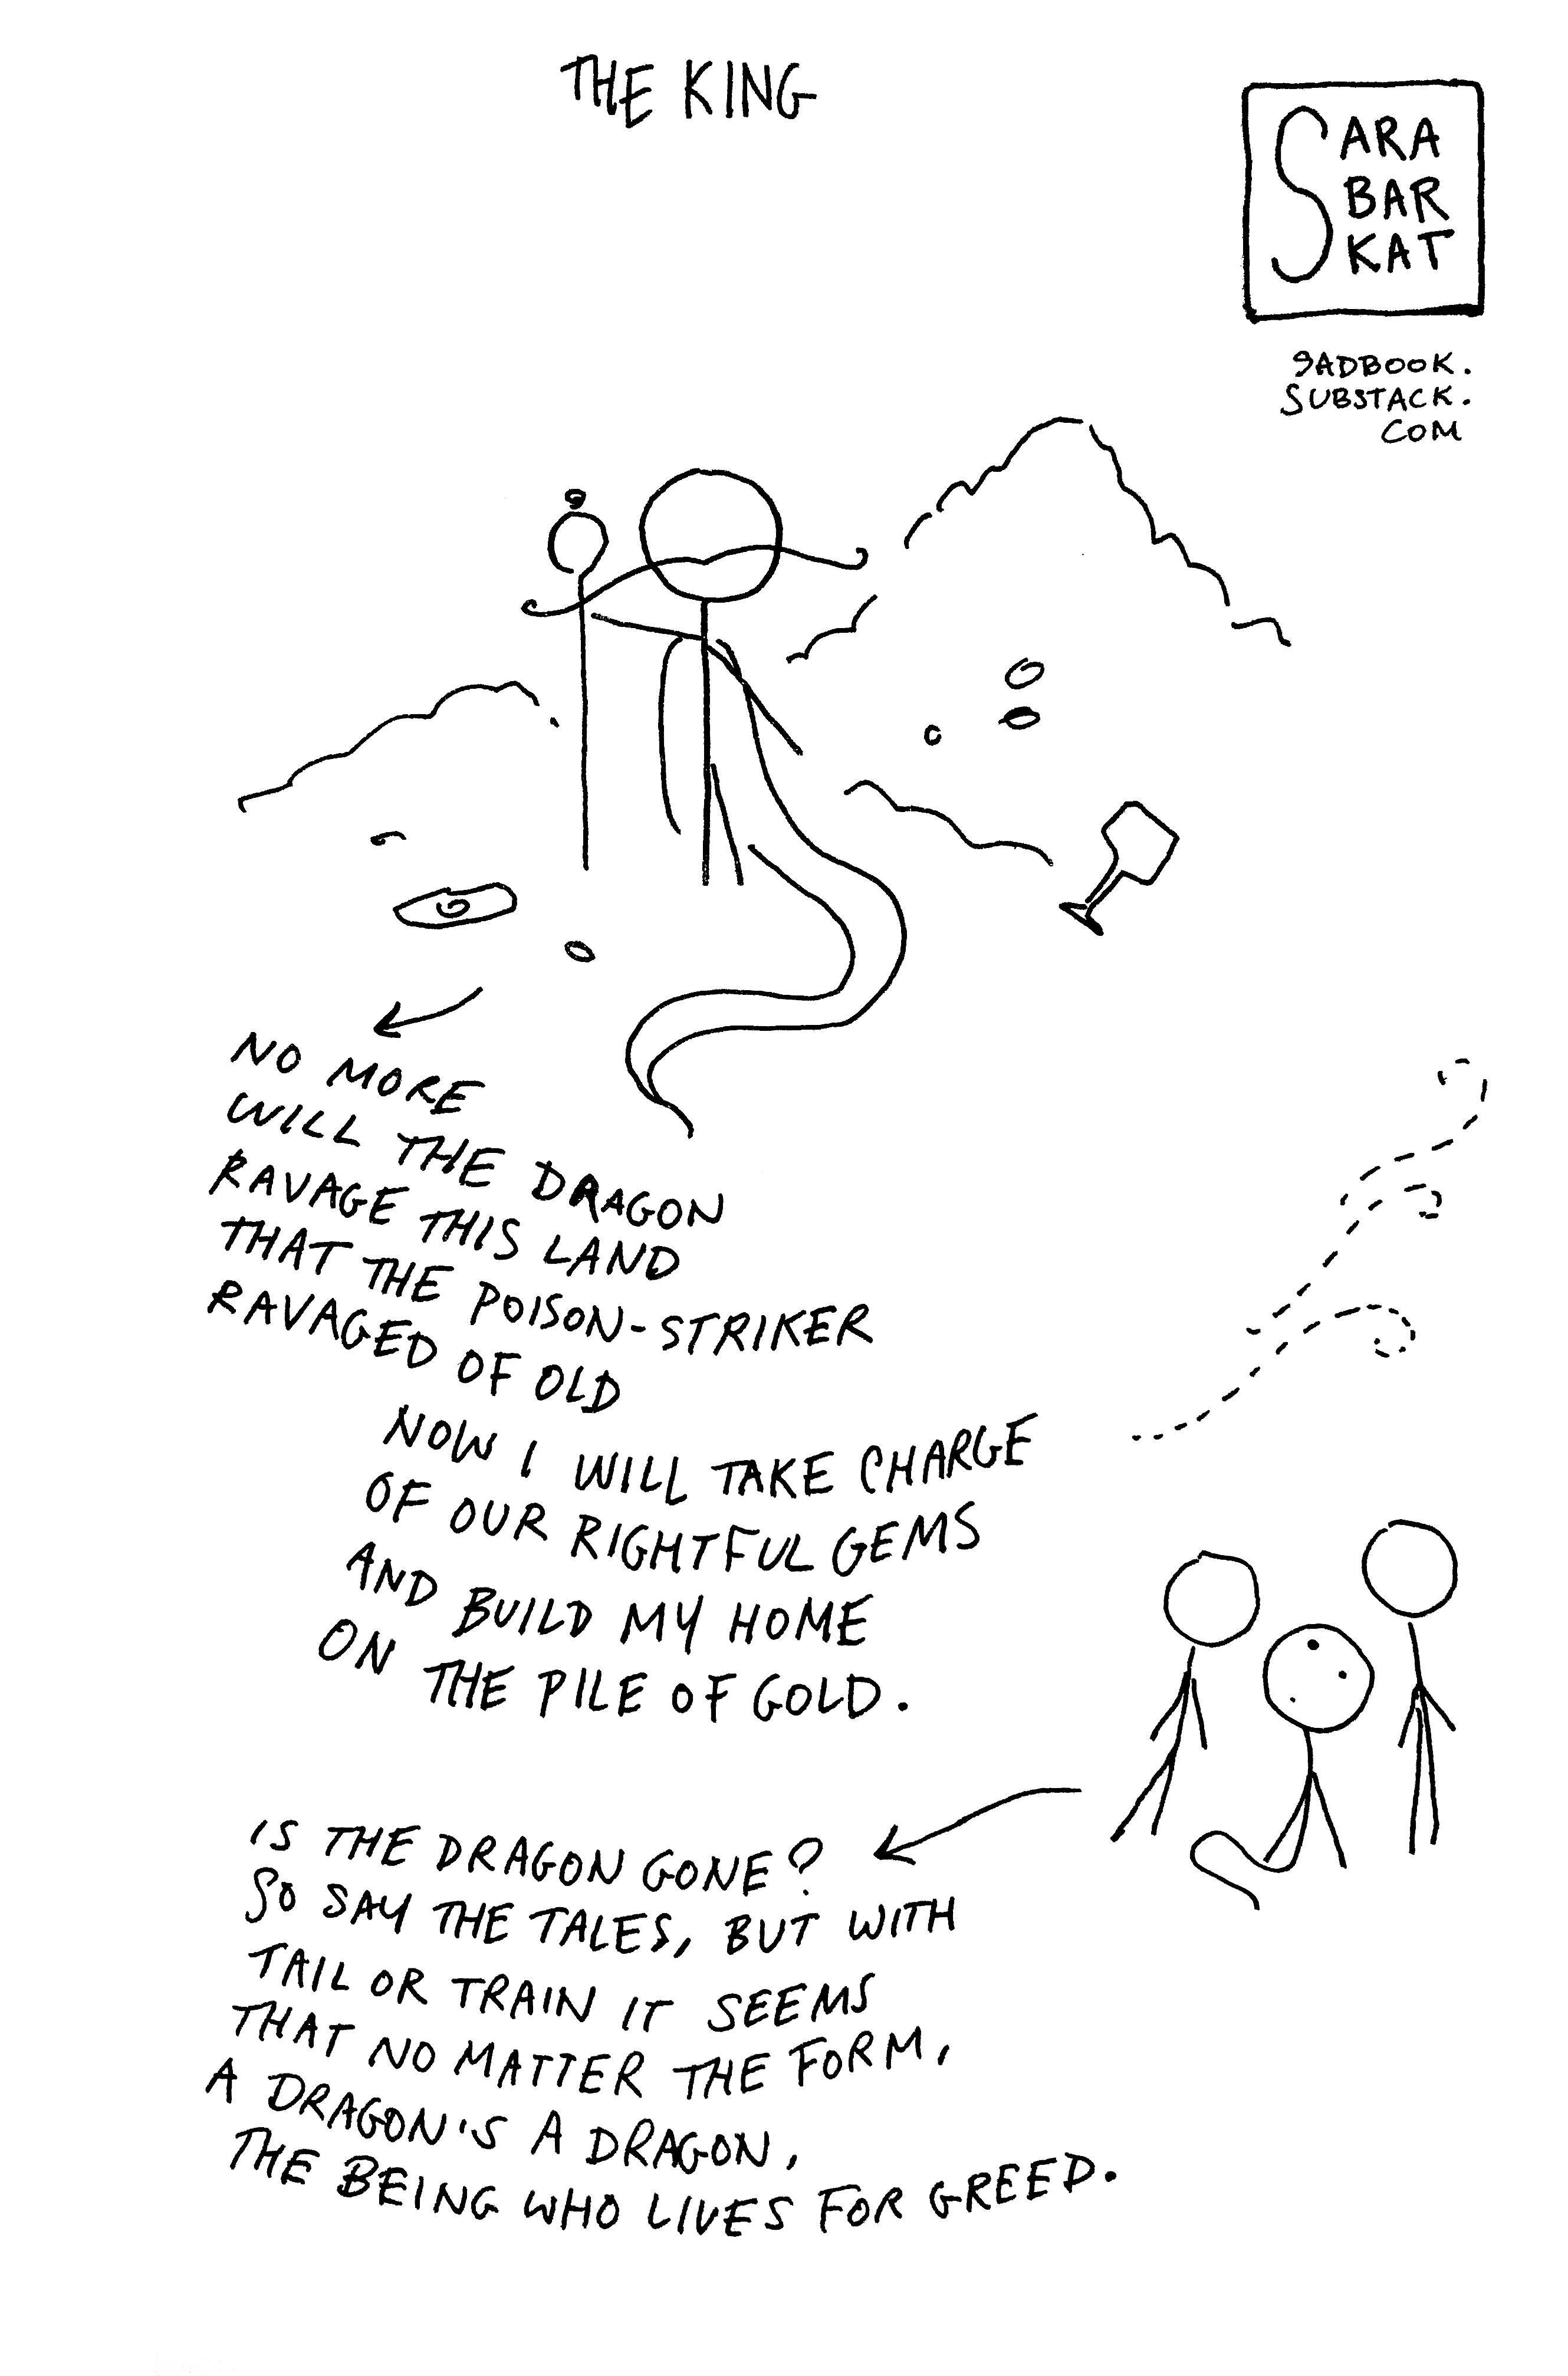 THE KING
SARA
BAR
KAT
SADBOOK.
SUBSTACK.
COM
NO MORE
WILL THE DRAGON
RAVAGE THIS LAND
THAT THE POISON-STRIKER
RAVAGED OF OLD
NOW I WILL TAKE CHARGE
OF OUR RIGHTFUL GEMS
AND BUILD MY HOME
ON THE PILE OF GOLD.
IS THE DRAGON GONE?
SO SAY THE TALES, BUT WITH
TAIL OR TRAIN IT SEEMS
THAT NO MATTER THE FORM,
A DRAGON'S A DRAGON,
THE BEING WHO LIVES FOR GREED.